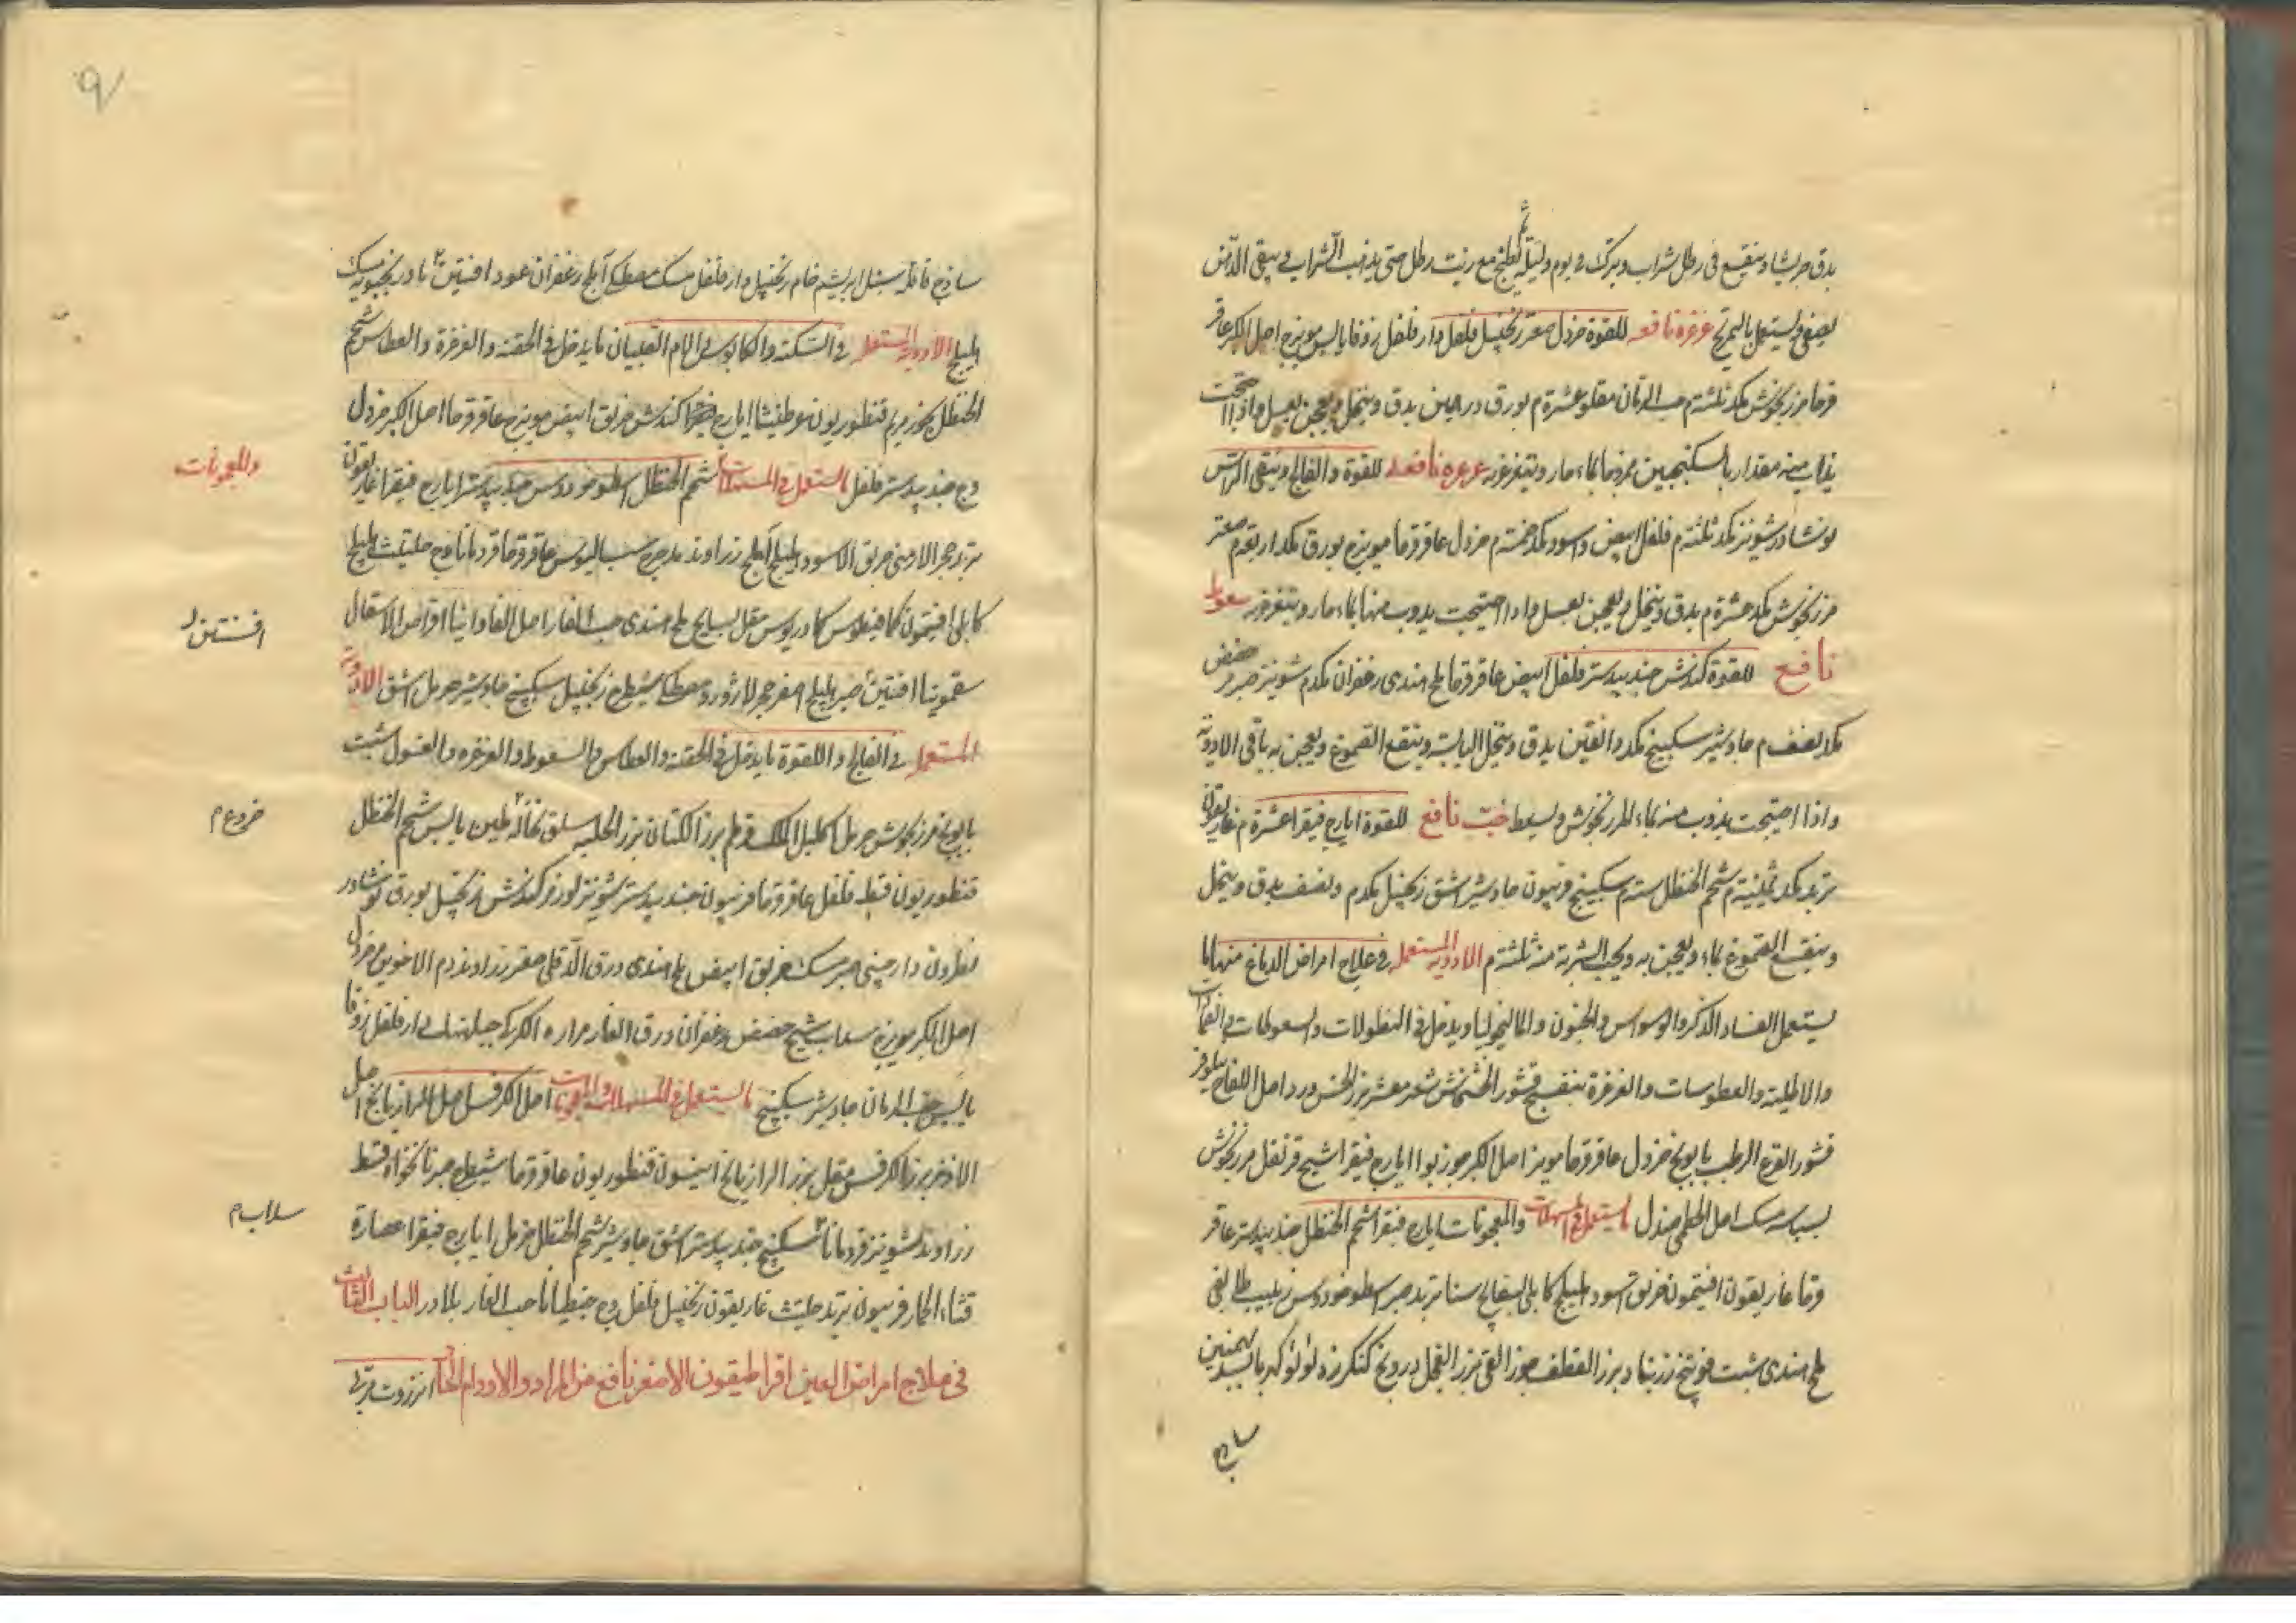 يدق جريشا وينقع في رطل شراب ويترك يوم وليلة ثم يطبخ مع زيت رطل حتى يذهب الشراب ويبقى الدهن
يصفى ويستعمل بالتمريخ غرغرة نافعه للقوة خردل صعتر زنجبيل فلفل دار فلفل زوفا يابس مويزج اصل الكبر عاقر
قرحا مرزنجوش مكد ثلثة م حب الرمان مقلو عشرة م بورق درهمين يدق وينخل ويعجن بعسل واذا احتجت
يذاب منه مقدار بالسكنجبين ممزوجا بماء حار ويتغرغر غرغره نافعه للقوة والفالج وينقى الراس
نوشادر شونيز مكد ثلثة م فلفل ابيض واسود مكد خمسة م خردل عاقرقرحا مويزج بورق مكد اربعة م صعتر
مرزنجوش مكد عشرة م يدق وينخل ويعجن بعسل واذا احتيجت يذوب منها بماء حار ويتغرغر سعوط
نافع للقوة كندش جندبيدستر فلفل ابيض عاقرقرحا ملح هندى زعفران مكد م شونيز صبر حضض
مكد نصف م جاوشير سكبينج مكد دانقين يدق وينخل اليابسة وينقع الصموغ ويعجن به باقى الادوية
واذا احتيجت يذوب منه بماء المرزنجوش ويسعط حب نافع للقوة ايارج فيقرا عشرة م غاريقون
تربد مكد ثمنية م شحم الحنظل ستة م سكبينج جاوشير اشق زنجبيل مكد م ونصف يدق وينخل
وينقع الصموغ بماء ويعجن به ويحب الشربة منه ثلثة م الادوية المستعمله في علاج امراض الدماغ منها ما
يستعمل لفساد الذكر والوسواس والجنون والماليخوليا ويدخل في النطولات والسعوطات والضمادات
والاطلية والعطوسات والغرغرة بنفسج قشور الخشخاش شعير مقشر بزر الخس ورد اصل اللفاح نيلوفر
قشور القرع الرطب بابونج خردل عاقرقرحا مويزج اصل الكبر جوز بوا ايارج فيقرا شيح قرنفل مرزنجوش
بسباسه مسك اصل الخطمى صندل ما يستعمل في المسهلات والمعجونات ايارج فيقرا شحم الحنظل جندبيدستر عاقر
قرحا غاريقون افتيمون خربق اسود هليلج كابلى بسفايج سنا تربد صبر اسطوخودوس زبيب طايفى
ملح هندى شبت فوتنج زرنباد بزر القطف جوز القى بزر الفجل درونج كنكرزد لؤلؤ كهربا بسد بهمنين
ساذج
ساذج قاقله سنبل ابريشم خام زنجبيل دار فلفل مسك مصطكى آملج زعفران عود افسنتين بادرنجبويه
هليلج الادوية المستعمله في السكته والكابوس وام الصبيان ما يدخل في الحقنه والغرغرة والعطاس شحم
الحنظل بخور مريم قنطوريون عرطنيثا ايارج فيقرا كندش خربق ابيض مويزج عاقرقرحا اصل الكبر خردل
وج جندبيدستر فلفل ما يستعمل في المسهلات شحم الحنظل اسطوخودوس جندبيدستر ايارج فيقرا غاريقون
والمعجونات
تربد حجر الارمنى خربق الاسود هليلج آملج زراوند مدحرج سيساليوس عاقرقرحا قردمانا وج حلتيث هليلج
كابلى افتيمون كمافيطوس كمادريوس مقل بسفايج ملح هندى حب الغار اصل الفاوانيا اقراص الاسقال
افسنتين
سقمونيا افسنتين صبر هليلج اصفر حجر لازورد مصطكى شيطرج زنجبيل سكبينج جاوشير حرمل اشق الادوية
المستعمله في الفالج واللقوة ما يدخل في الحقنه والعطاس والسعوط والغرغره والغسول شبت
بابونج مرزنجوش حرمل اكليل الملك قرطم بزر الكتان بزر الحلبه سلق نخاله تين يابس شحم الحنظل
خروع م
قنطوريون قسط فلفل عاقرقرحا فربيون جندبيدستر شونيز لوز مر كندش زنجبيل بورق نوشادر
نطرون دارچينى صبر مسك خربق ابيض ملح هندى ورق الدفلى صعتر زراوند دم الاخوين مر خردل
اصل الكبر مويزج سداب شيح حضض زعفران ورق الغار مراره الكركى دار فلفل زوفا
يابس حب الرمان جاوشير سكبينج ما يستعمل في المسهلات والمعجونات اصل الكرفس اصل الرازيانج اصل
الاذخر بزر الكرفس مقل بزر الرازيانج انيسون قنطوريون عاقرقرحا شيطرج صبر نانخواه قسط
زراوند شونيز قردمانا سكبينج جندبيدستر اشق جاوشير شحم الحنظل حرمل ايارج فيقرا عصارة
سداب م
قثاء الحمار فربيون تربد حلتيث غاريقون زنجبيل فلفل وج جنطيانا حب الغار بلادر الباب الثالث
في علاج امراض العين اقراطيقون الاصفر نافع من الرمد والاورام الحار انزروت مربى